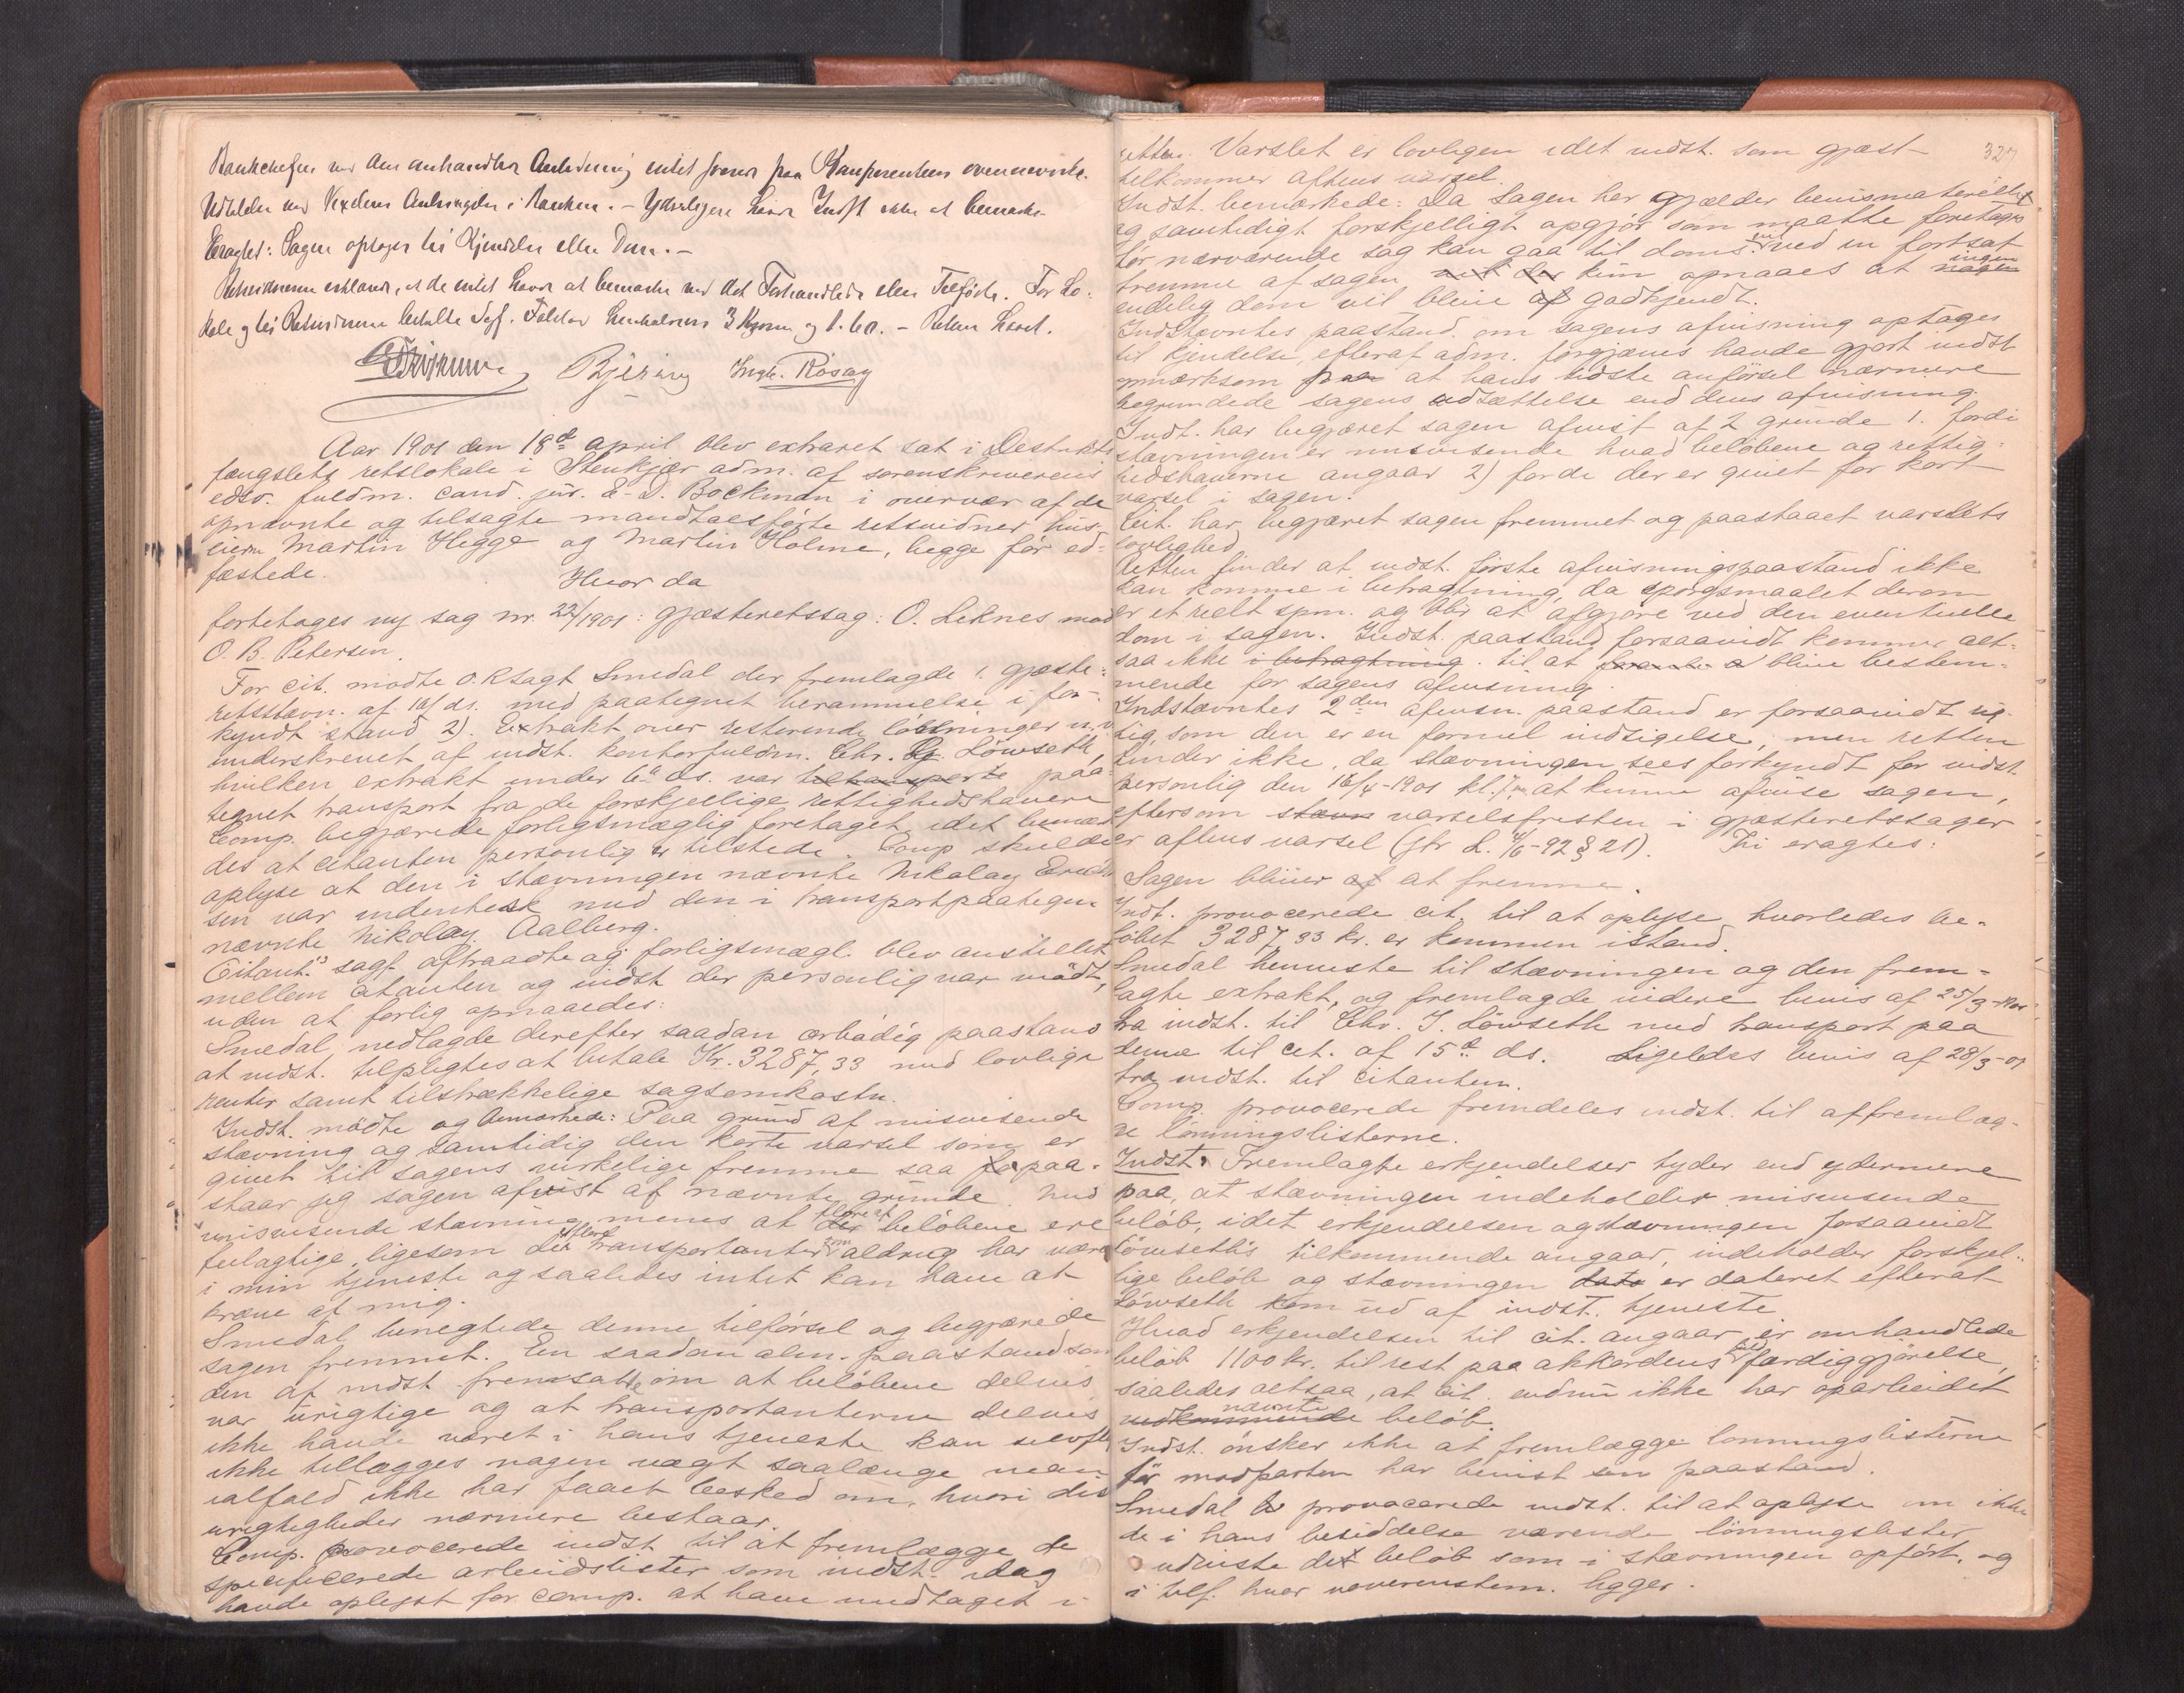 Bankchefen ved den omhandlede Anledning intet svarede paa Komparentens ovennævnte
Udtalelse ved Vexlens Anbringelse i Banken. – Yderligere havde Indst ikke at bemærke
Eragtet: Sagen optages til Kjendelse eller Dom. –
Retsvidnerne erklærede, at de intet havde at bemærke ved det Forhandlede eller Tilførte. For Lo-
kale og til Retsvidnerne betalte Sagf. 3 Kroner og – Retten hævet.
Bjering Ingb. Rösæg
Aar 1901 den 18de april blev extraret sat i Destrikts
fængslets retslokale i Stenkjær adm. af sorenskriverens
edsv. fuldm. cand. jur. E. D. Bockman i overvær af de
opnævnte og tilsagte mandtalsførte retsvidner hus-
eiern Martin Hegge og Martin Holme, begge før ed-
fæstede. Hvor da
foretoges ny sag nr. 22/1901: gjæsteretssag: O. Leknes mod
O. B. Petersen.
For cit. mødte o.r.sagf Smedal der fremlagde 1. gjæste-
retsstævn. af 16/ ds. med paategnet berammelse i for-
kyndt stand 2). Extrakt over resterende lønninger m.v.
underskrevet af indst. kontorfuldm. Chr. Löwseth,
hvilken extrakt under ds. var paa-
tegnet transport fra de forskjellige rettighedshavere
Comp. begjærede forligsmægling foretaget idet bemær-
des at citanten personlig er tilstede. Comp skulde
oplyse at den i stævningen nævnte Nikolay Erik-
sen var indentisk med den i transportpaategn.
nævnte Nikolay Aalberg.
Citant.s sagf. aftraadte og forligsmægl. blev anstillet
mellem citanten og indst der personlig var mødt,
uden at forlig opnaaedes:
Smedal nedlagde derefter saadan ærbødig paastand
at indst. tilpligtes at betale Kr. 3287,33 med lovlige
renter samt tilstrækkelige sagsomkostn.
Indst. mødte og bemærkede: Paa grund af misvisende
stævning og samtidig den korte varsel som er
givet til sagens virkelige fremme saa paa-
staar jeg sagen afvist af nævnte grunde. Med
misvisende stævning menes at flere af beløbene ere
feilagtige, ligesom flere transportanter som aldrig har været
i min tjeneste og saaledes intet kan have at
kræve af mig.
Smedal benegtede denne tilførsel og begjærede
sagen fremmet. En saadan alm. paastand som
den af indst fremsatte om at beløbene delvis
var urigtige og at transportanterne delvis
ikke havde været i hans tjeneste kan selvfl
ikke tillægges nogen vægt saalænge man
ialfald ikke har faaet besked om, hvori dis
urigtigheder nærmere bestaar.
Comp. provocerede indst til at fremlægge de
specificerede arbeidslister som indst. idag
havde oplyst for comp. at have medtaget i
327
retten. Varslet er lovligen idet indst. som gjæst
tilkommer aftens varsel.
Indst. bemærkede: Da sagen her gjælder bevismateriellet
og samtidigt forskjelligt opgjør som maatte foretages
før nærværende sag kan gaa til doms ved en fortsat
fremme af sagen kun opnaaes at ingen
endelig dom vil blive godkjendt.
Indstævntes paastand om sagens afvisning optages
til kjendelse, efterat adm. forgjæves havde gjort indst
opmærksom paa at hans sidste anførsel nærmere
begrundede sagens udsættelse end dens afvisning.
Indt. har begjæret sagen afvist af 2 grunde 1. fordi
stævningen er misvisende hvad beløbene og rettig-
hedshaverne angaar 2) fordi der er givet for kort
varsel i sagen.
Cit. har begjæret sagen fremmet og paastaaet varslets
lovlighed
Retten finder at indst. første afvisningspaastand ikke
kan komme i betragtning, da spørgsmaalet derom
er et reelt spm. og blir at afgjøre ved den eventuelle
dom i sagen. Indst. paastand forsaavidt kommer alt-
saa ikke i betragtning. til at blive bestem-
mende for sagens afvisning.
Indstævntes 2den afvisn. paastand er forsaavidt rig-
tig, som den er en formel indsigelse, men retten
finder ikke, da stævningen sees forkyndt for indst.
personlig den 16/4-1901 kl. 7 at kunne afvise sagen,
eftersom varselsfristen i gjæsteretssager
er aftens varsel (jfr L. /6-92 § 21). Thi eragtes:
Sagen bliver at fremme.
Indt. provocerede cit. til at oplyse, hvorledes be-
løbet 3287,33 kr. er kommen istand.
Smedal henviste til stævningen og den frem-
lagte extrakt, og fremlagde videre bevis af 25/3-1901
fra indst. til Chr. J. Löwseth med transport paa
denne til cit. af 15d ds. Ligeledes bevis af 28/3-01
fra indst. til citanten.
Comp. provocerede fremdeles indst. til at fremlæg-
ge lønningslisterne.
Indst. Fremlagte erkjendelser tyder end ydermere
paa, at stævningen indeholder misvisende
beløb, idet erkjendelsen og stævningen forsaavidt
Löwseths tilkommende angaar, indeholder forskjel-
lige beløb og stævningen dato er dateret efterat
Löwseth kom ud af indst. tjeneste
Hvad erkjendelsen til cit. angaar, er omhandlede
beløb 1100 kr. til rest paa akkordens færdiggjørelse,
saaledes altsaa, at cit. endnu ikke har oparbeidet
vedkommende nævnte beløb.
Indst. ønsker ikke at fremlægge lønningslisterne
før modparten har bevist sin paastand.
Smedal provocerede indst. til at oplyse om ikke
de i hans besiddelse værende lønningslister
udviste det beløb som i stævningen opført, og
i tilf. hvor uoverenstem. ligger.